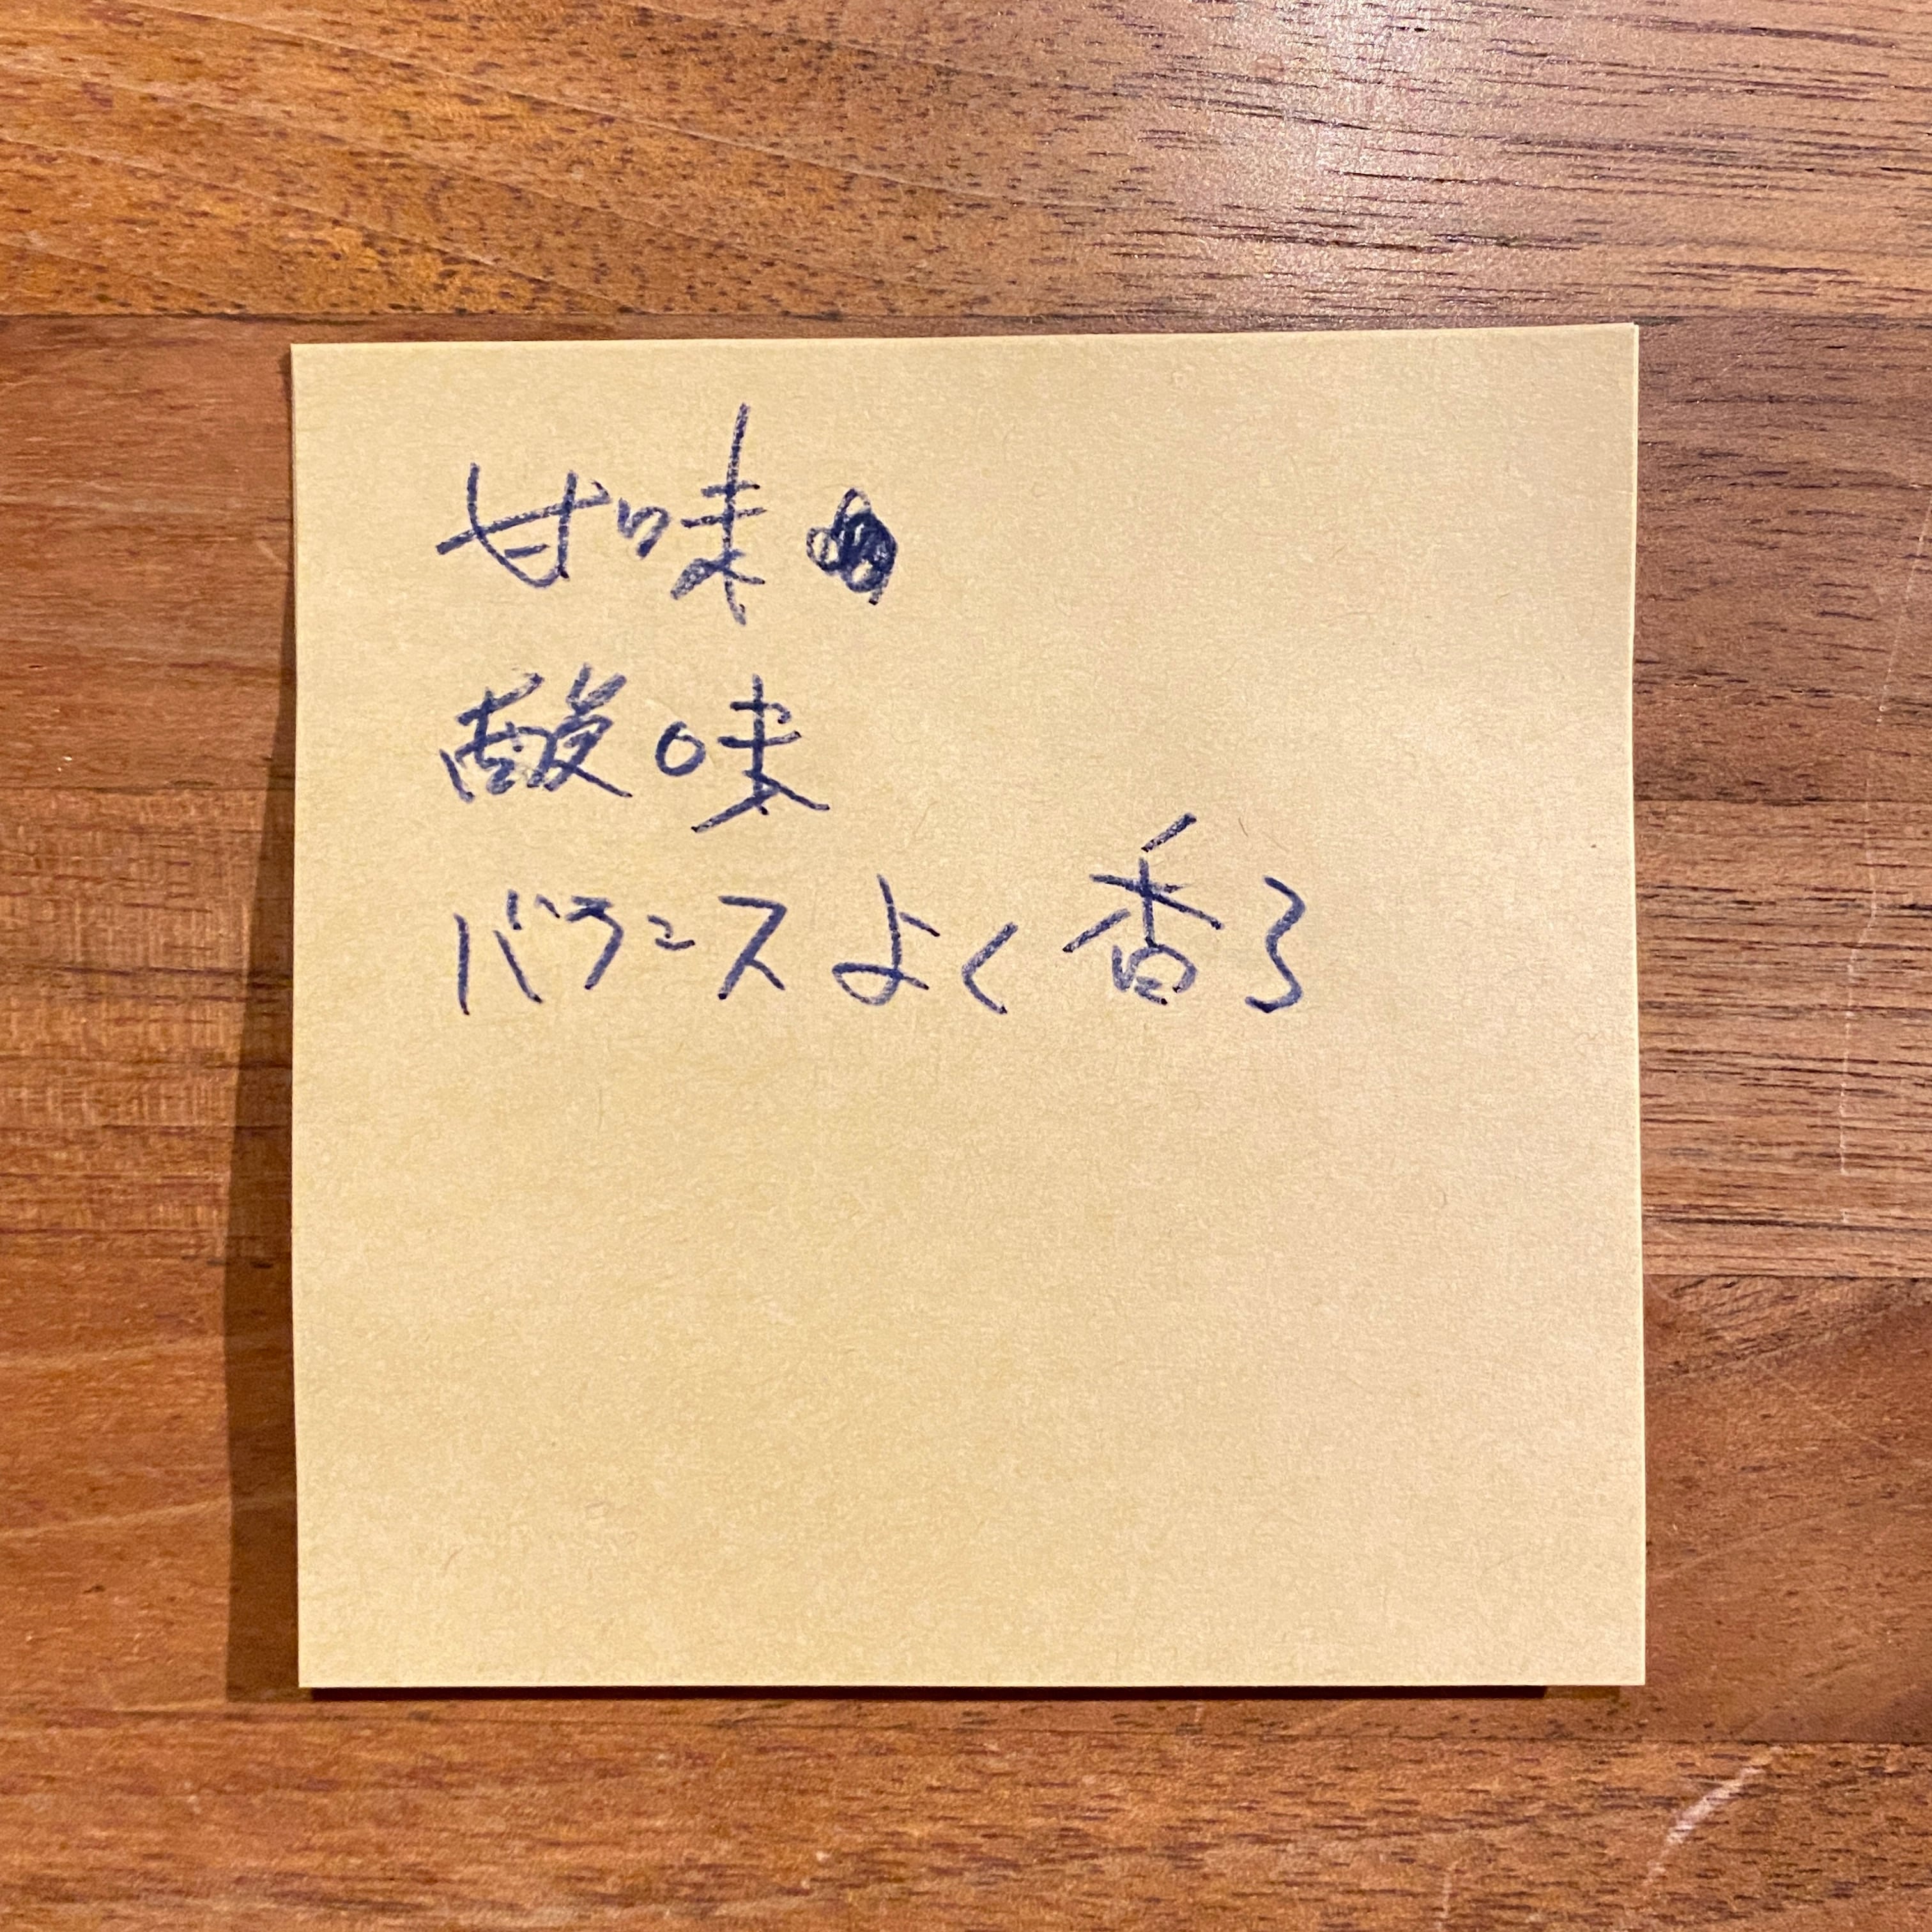 甘味
酸味
バランスよく香る